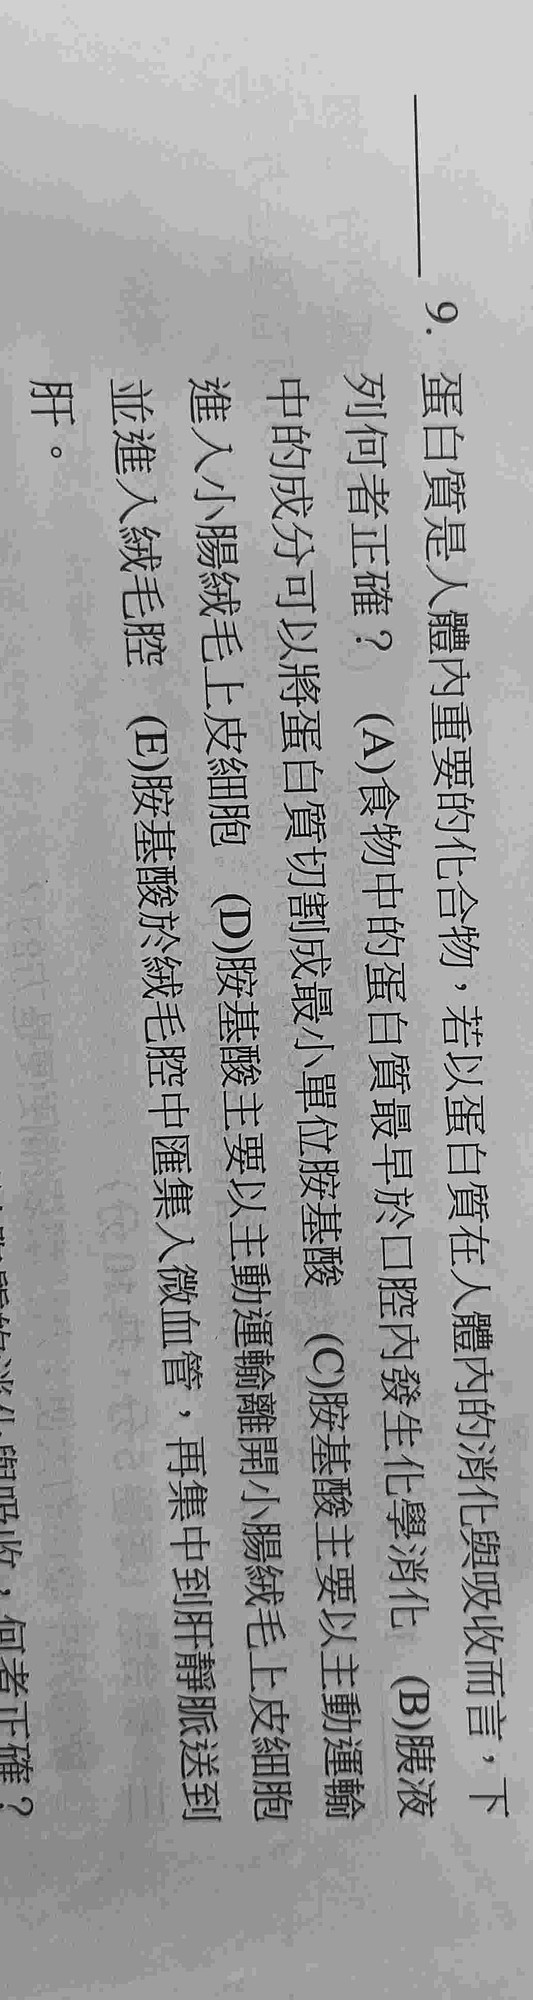 9. 蛋白質是人體內重要的化合物，若以蛋白質在人體內的消化與吸收而言，下
列何者正確？ (A)食物中的蛋白質最早於口腔內發生化學消化 (B)胰液
中的成分可以將蛋白質切割成最小單位胺基酸 (C)胺基酸主要以主動運輸
進入小腸絨毛上皮細胞 (D)胺基酸主要以主動運輸離開小腸絨毛上皮細胞
並進入絨毛腔 (E)胺基酸於絨毛腔中匯集入微血管，再集中到肝靜脈送到
肝。
消化與吸收，何者正確？